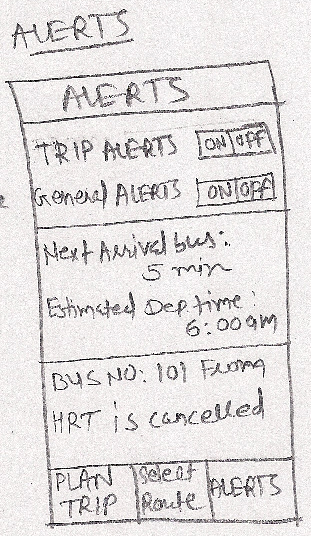 ALERTS
ALERTS
TRIP ALERTS ON OFF
General ALERTS ON OFF
Next Arrival bus:
5 min
Estimated Dep time:
6:00am
BUS NO: 101 From
HRT is cancelled
PLAN TRIP
Select Route
ALERTS